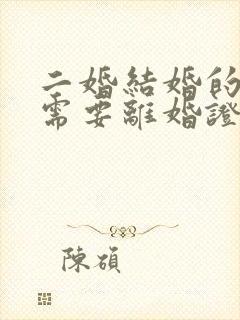 二婚結婚的
需要離婚證
陳碩